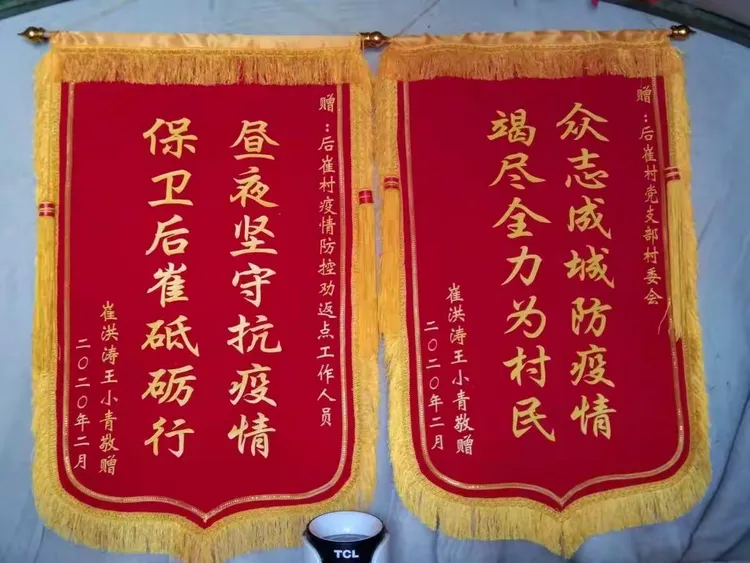 赠：后崔村疫情防控劝返点工作人员
昼夜坚守抗疫情
保卫后崔砥砺行
崔洪涛王小青敬赠
二〇二〇年二月
赠：后崔村党支部村委会
众志成城防疫情
竭尽全力为村民
崔洪涛王小青敬赠
二〇二〇年二月
TCL